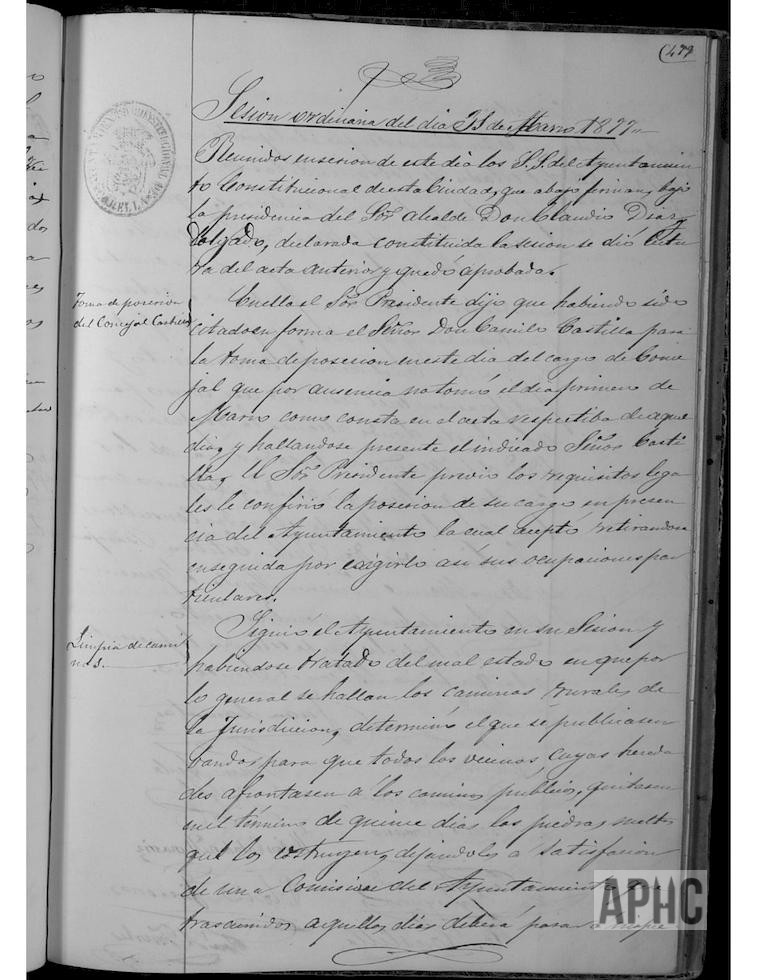 (479
Sesion ordinaria del dia 25 de Marzo 1877..
Reunidos en sesion de este dia los S.S. del Ayuntamien
to Constitucional de esta Ciudad, que abajo firman, bajo
la presidencia del Sor Alcalde Don Claudio Diaz
Delgado, declarada constituida la sesion se dió lectu
ra del acta anterior y quedó aprobada.
Toma de posesion
del Concejal Castilla
En ella el Sor Presidente dijo que habiendo sido
citado en forma el Señor Don Camilo Castilla para
la toma de posesion en este dia del cargo de Conce
jal que por ausencia no tomó el dia primero de
Marzo como consta en el acta respectiba de aquel
dia, y hallandose presente el indicado Señor Casti
lla, el Sor Presidente previo los requisitos lega
les le confirió la posesion de su cargo en presen
cia del Ayuntamiento la cual aceptó retirandose
enseguida por exigirlo así sus ocupaciones par
ticulares.
Limpia de cami
nos.
Siguió el Ayuntamiento en su Sesion y
habiendose tratado del mal estado en que por
lo general se hallan los caminos rurales de
la Jurisdiccion, determinó el que se publicasen
vandos para que todos los vecinos cuyas hereda
des afrontasen a los caminos públicos, quitasen
en el término de quince dias las piedras sueltas
que los ostruyen, dejándolos a satisfacion
de una Comision del Ayuntamiento que
trascurridos aquellos dias deberá pasar a inspec
APHC